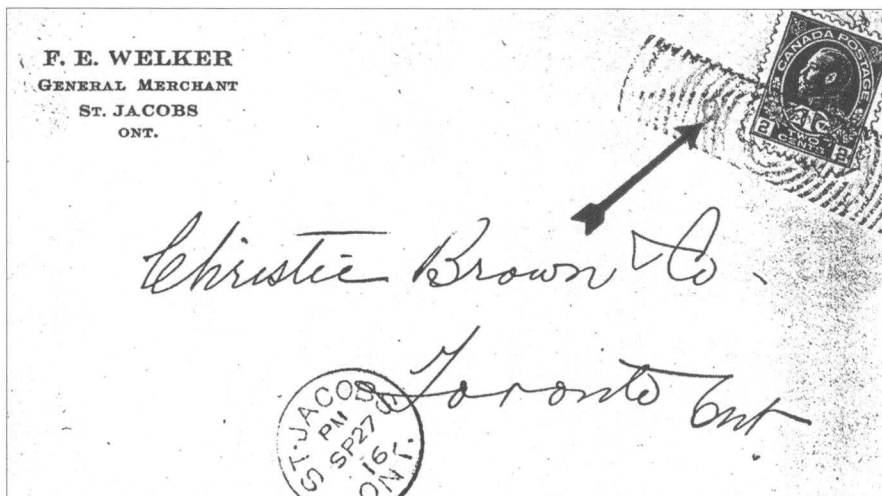 F. E. WELKER
GENERAL MERCHANT
ST. JACOBS
ONT.
CANADA POSTAGE
1TC
2 TWO CENTS 2
Christie Brown & Co.
Toronto Ont
ST. JACOBS ONT.
PM
SP 27
16